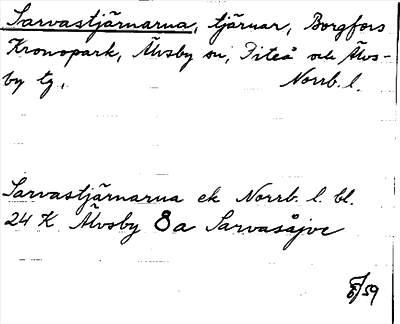 Sarvastjärnarna, tjärnar, Borgfors
Kronopark, Älvsby sn, Piteå och Älvs-
by tg. Norrb. l.
Sarvastjärnarna ek Norrb. l. bl.
24 K Älvsby 8a Sarvasåjve
/59